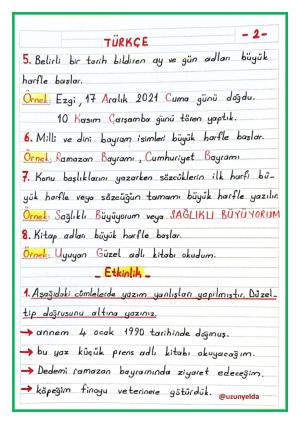 TÜRKÇE
- 2 -
5. Belirli bir tarih bildiren ay ve gün adları büyük
harfle başlar.
Örnek: Ezgi, 17 Aralık 2021 Cuma günü doğdu.
10 Kasım Çarşamba günü tören yaptık.
6. Milli ve dini bayram isimleri büyük harfle başlar.
Örnek: Ramazan Bayramı, Cumhuriyet Bayramı
7. Konu başlıklarını yazarken sözcüklerin ilk harfi bü-
yük harfle veya sözcüğün tamamı büyük harfle yazılır.
Örnek: Sağlıklı Büyüyorum veya SAĞLIKLI BÜYÜYORUM
8. Kitap adları büyük harfle başlar.
Örnek: Uyuyan Güzel adlı kitabı okudum.
- Etkinlik -
1. Aşağıdaki cümlelerde yazım yanlışları yapılmıştır. Düzel-
tip doğrusunu altına yazınız.
→ annem 4 ocak 1990 tarihinde doğmuş.
→ bu yaz küçük prens adlı kitabı okuyacağım.
→ Dedemi ramazan bayramında ziyaret edeceğim.
→ köpeğim finoyu veterinere götürdük.
@uzunyelda